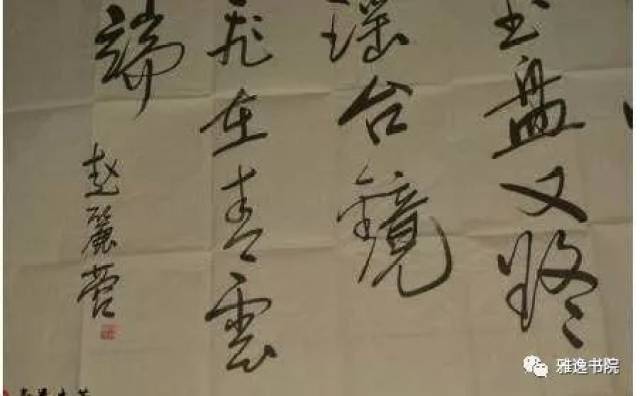 玉盘又疑
瑶台镜
飛在青雲
端
赵麗蓉
雅逸书院